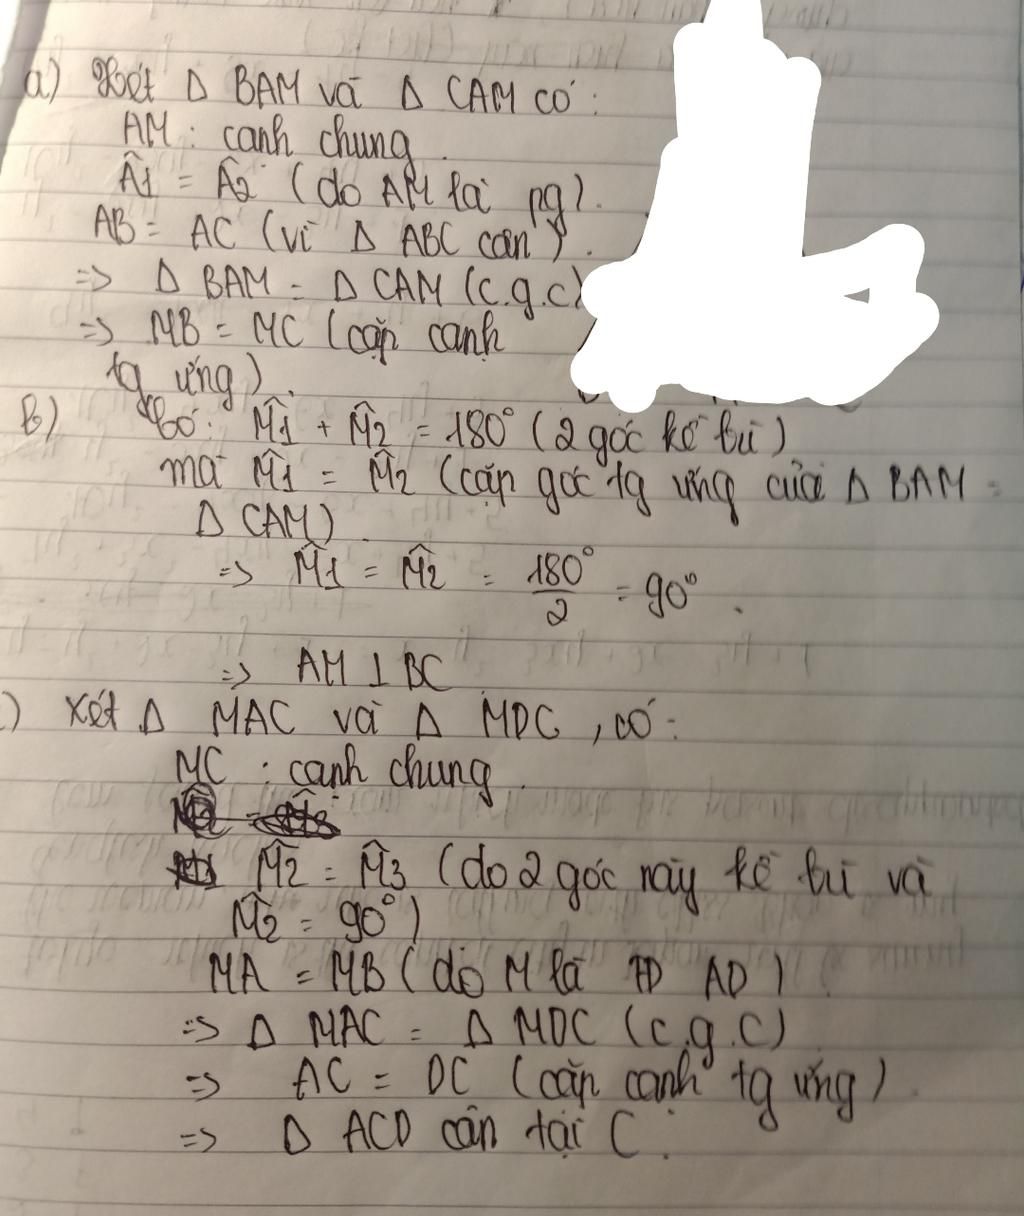 a) Xét Δ BAM và Δ CAM có:
AM: cạnh chung.
Â1 = Â2 (do AM là pg).
AB = AC (vì Δ ABC cân).
=> Δ BAM = Δ CAM (c.g.c)
=> MB = MC (cặp cạnh
tg ứng).
b) Có: M̂1 + M̂2 = 180° (2 góc kề bù)
mà M̂1 = M̂2 (cặp góc tg ứng của Δ BAM =
Δ CAM).
=> M̂1 = M̂2 = 180°/2 = 90°.
=> AM ⊥ BC
) Xét Δ MAC và Δ MDC, có:
MC: cạnh chung.
M̂2 = M̂3 (do 2 góc này kề bù và
M̂2 = 90°)
MA = MB (do M là TĐ AD)
=> Δ MAC = Δ MDC (c.g.c)
=> AC = DC (cặp cạnh tg ứng)
=> Δ ACD cân tại C.